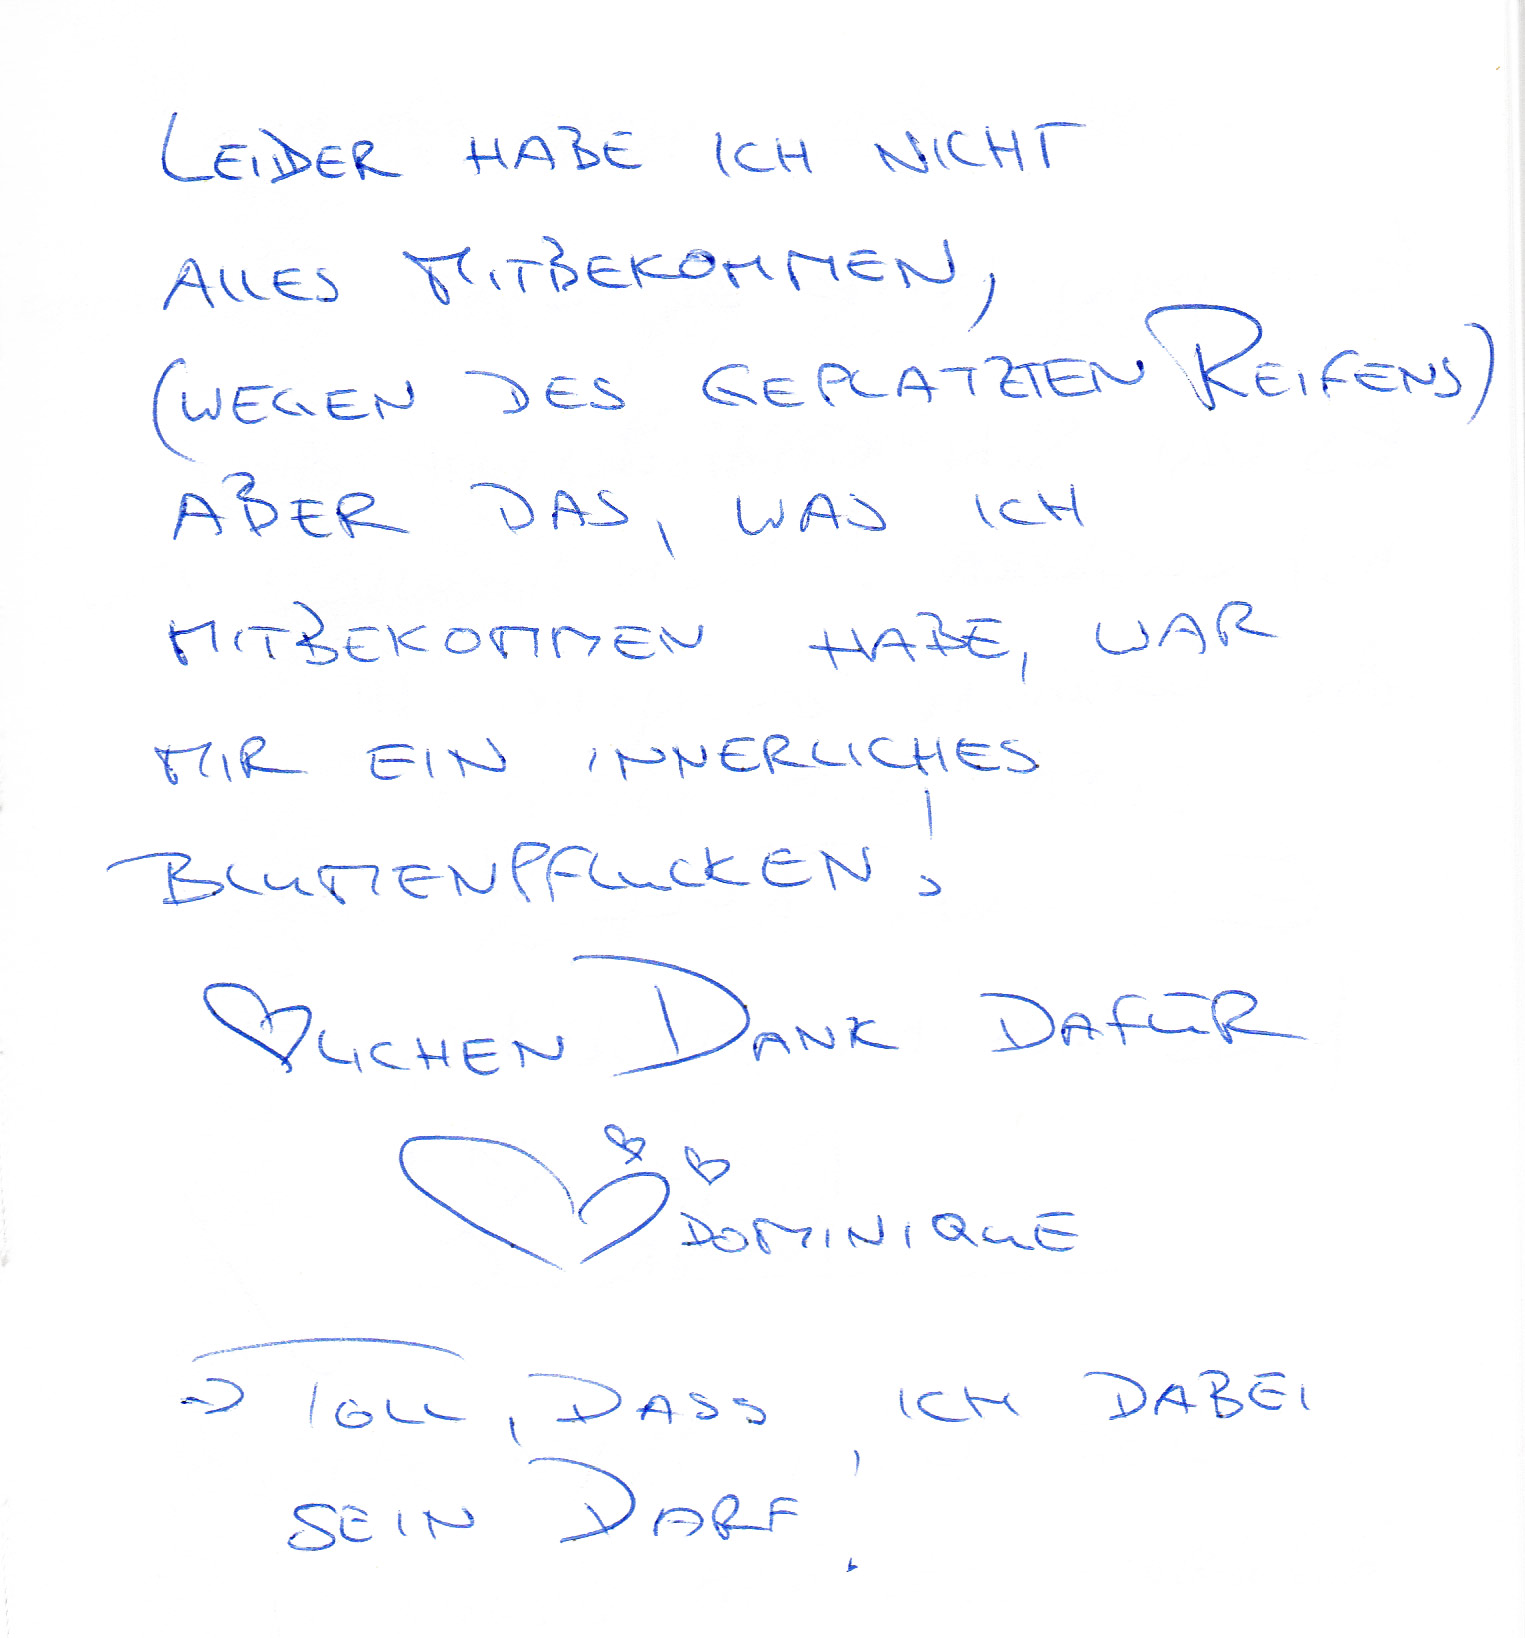 LEIDER HABE ICH NICHT
ALLES MITBEKOMMEN,
(WEGEN DES GEPLATZTEN REIFENS)
ABER DAS, WAS ICH
MITBEKOMMEN HABE, WAR
MIR EIN INNERLICHES
BLUMENPFLUCKEN!
♡LICHEN DANK DAFÜR
DOMINIQUE
→ TOLL, DASS ICH DABEI
SEIN DARF!